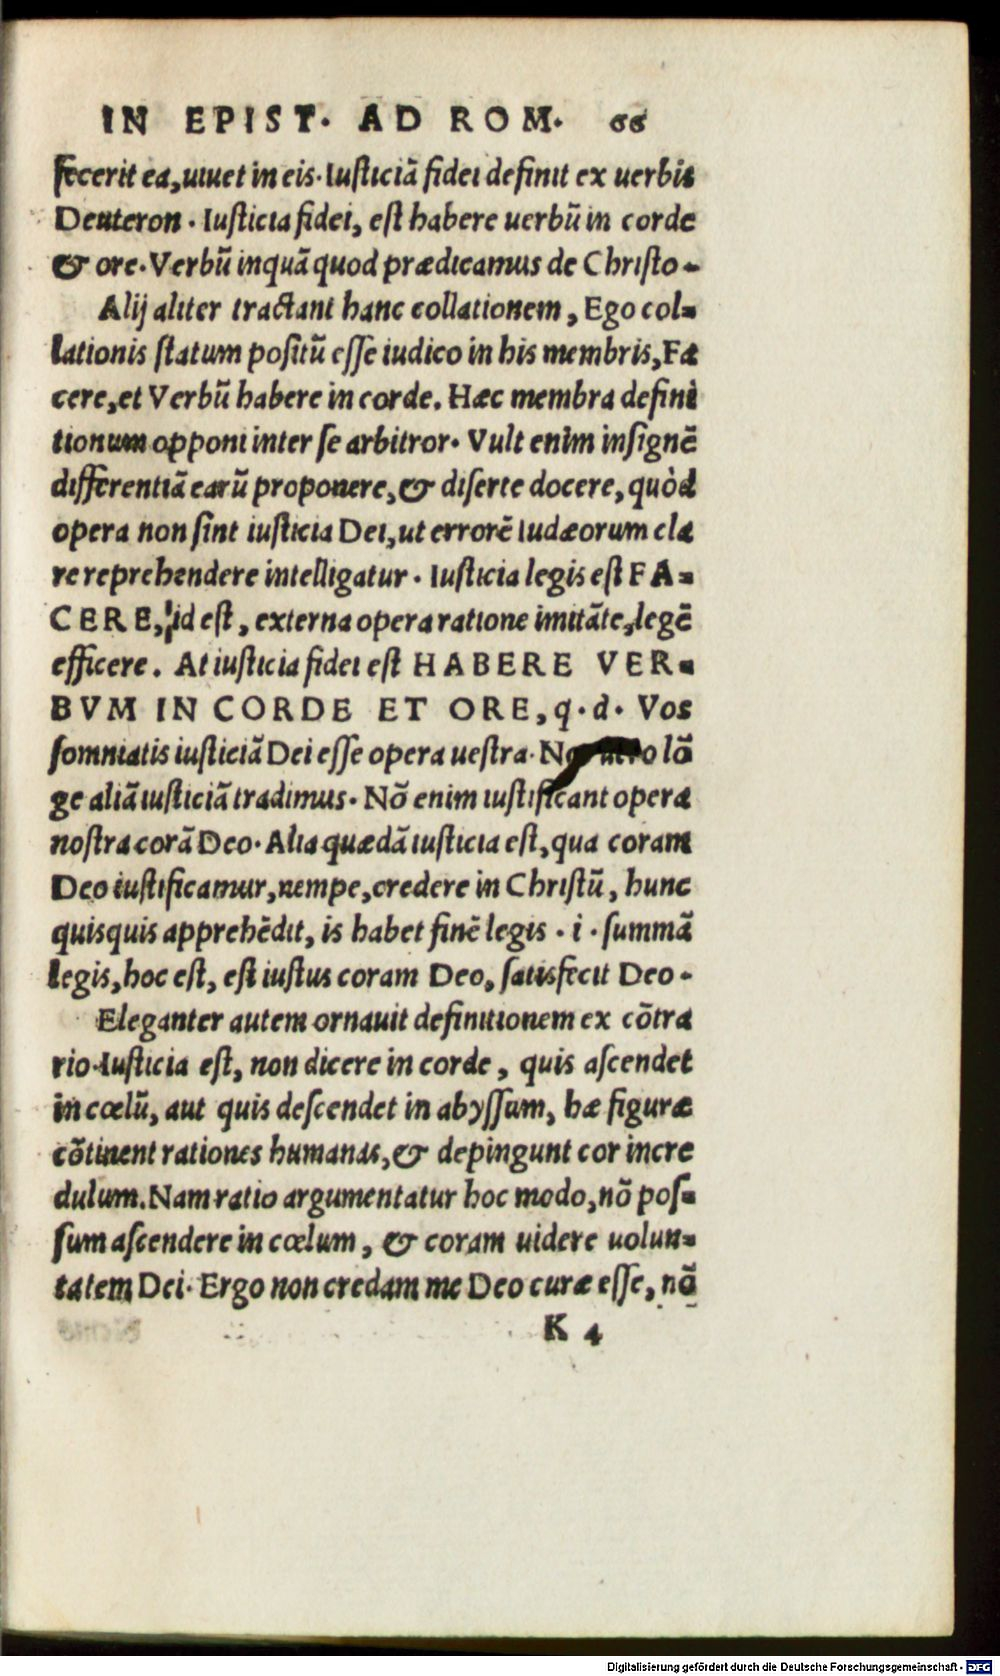 IN EPIST. AD ROM. 66
fecerit ea, uiuet in eis. Iusticiā fidei definit ex uerbis
Deuteron. Iusticia fidei, est habere uerbū in corde
& ore. Verbū inquā quod prædicamus de Christo.
Alij aliter tractant hanc collationem, Ego col-
lationis statum positū esse iudico in his membris, Fa
cere, et Verbū habere in corde. Hæc membra defini
tionum opponi inter se arbitror. Vult enim insignē
differentiā earū proponere, & diserte docere, quòd
opera non sint iusticia Dei, ut errorē Iudæorum cla
re reprehendere intelligatur. Iusticia legis est FA-
CERE, id est, externa opera ratione imitāte, legē
efficere. At iusticia fidei est HABERE VER-
BVM IN CORDE ET ORE, q. d. Vos
somniatis iusticiā Dei esse opera uestra. lō
ge aliā iusticiā tradimus. Nō enim iustificant opera
nostra corā Deo. Alia quædā iusticia est, qua coram
Deo iustificamur, nempe, credere in Christū, hunc
quisquis apprehēdit, is habet finē legis . i . summā
legis, hoc est, est iustus coram Deo, satisfecit Deo.
Eleganter autem ornauit definitionem ex cōtra
rio. Iusticia est, non dicere in corde, quis ascendet
in cœlū, aut quis descendet in abyssum, hæ figuræ
cōtinent rationes humanas, & depingunt cor incre
dulum. Nam ratio argumentatur hoc modo, nō pos-
sum ascendere in cœlum, & coram uidere uolun-
tatem Dei. Ergo non credam me Deo curæ esse, nō
K 4
Digitalisierung gefördert durch die Deutsche Forschungsgemeinschaft - DFG